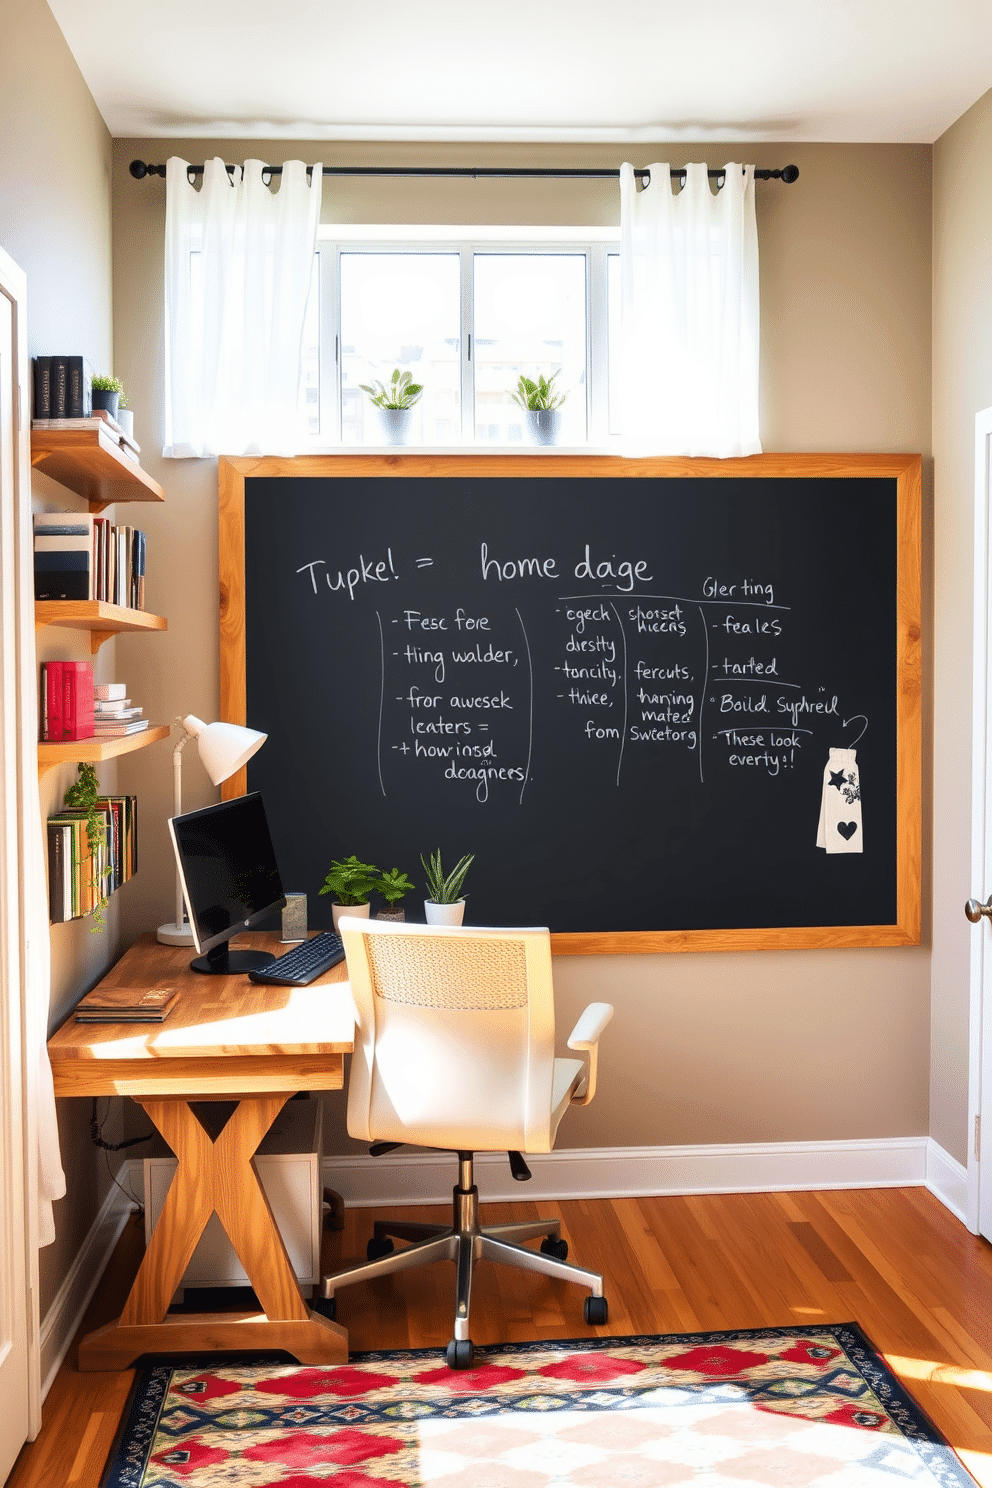 Tupke! = home daige
- Fesc fore
- thing walder,
- fror awesek
leaters =
-+ how insd
dcagners.
- cgech
diestty
- toncity.
- thiee,
from
shorset
hicens
fercuts,
thanning
matez
Swetorg
Gler ting
- feales
- tarted
Boild. Syphreil
These look
everty!!